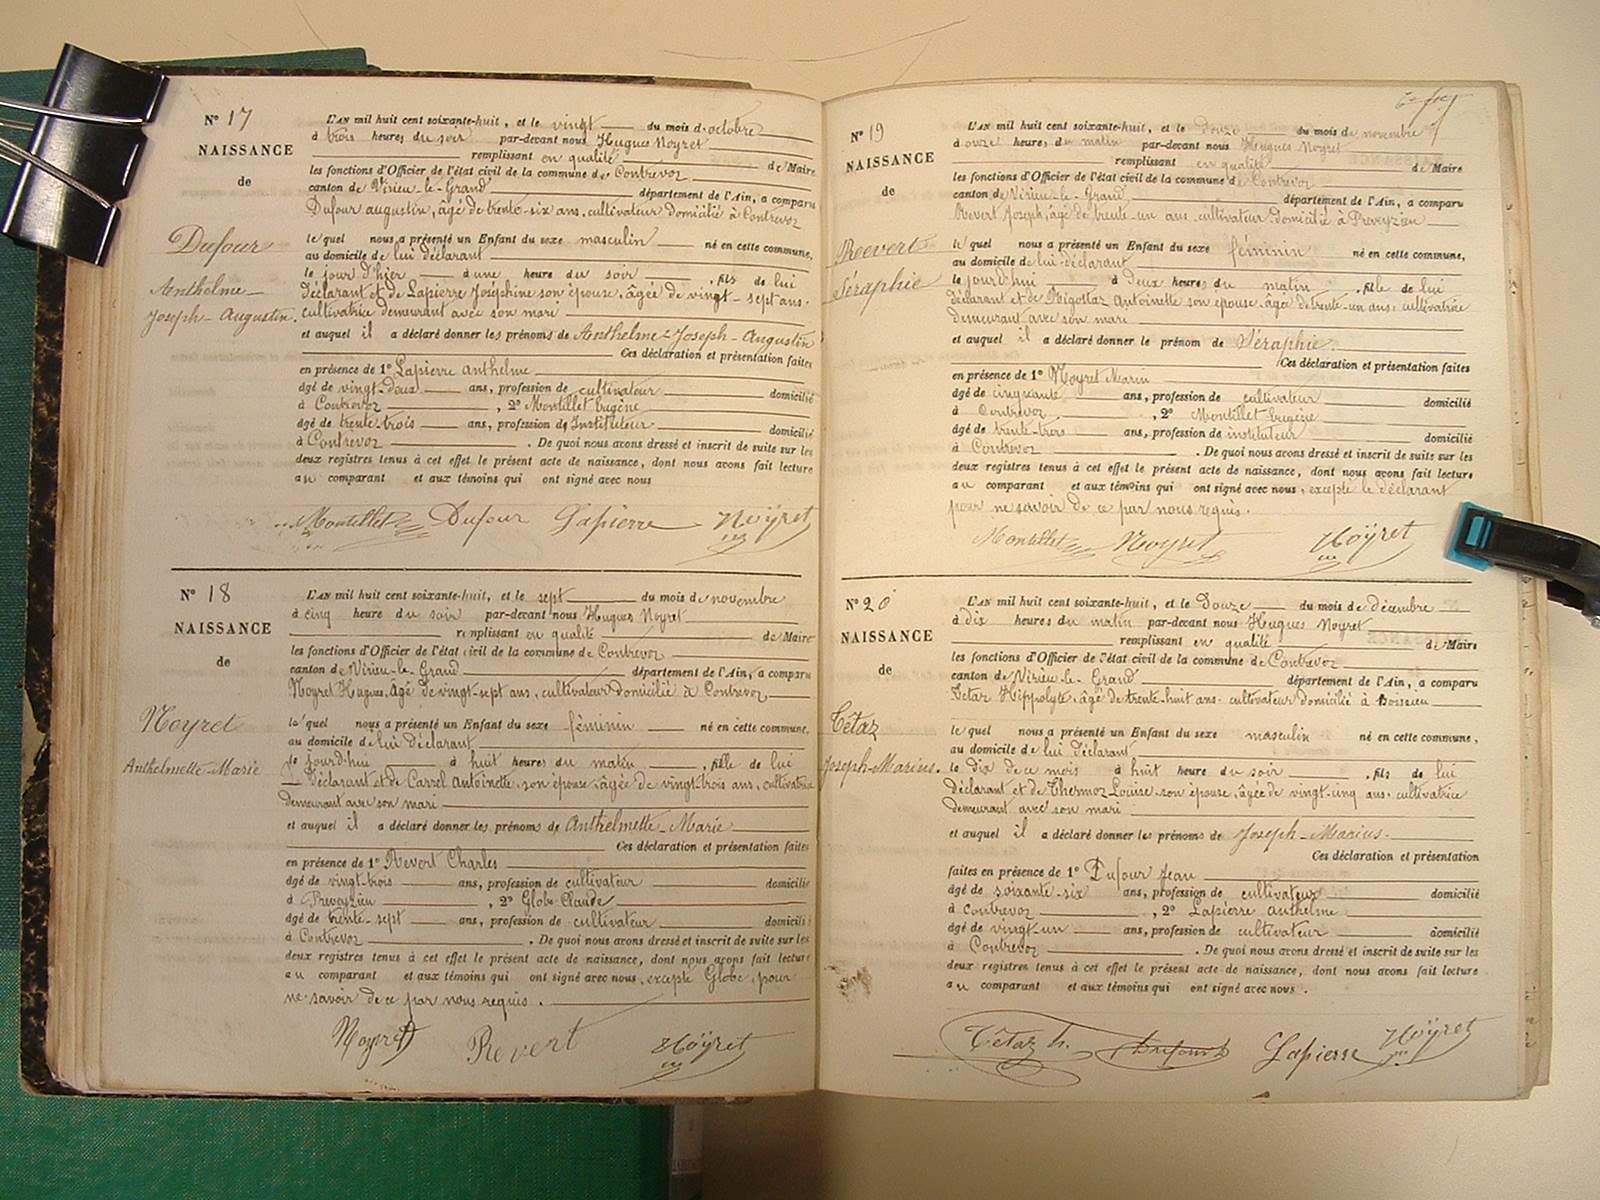 N° 17
NAISSANCE
de
Dufour
Anthelme-
Joseph-Augustin.
L'AN mil huit cent soixante-huit, et le vingt du mois d'octobre
à trois heures du soir par-devant nous Hugues Noyret
remplissant en qualité de Maire
les fonctions d'Officier de l'état civil de la commune de Contrevoz
canton de Virieu-le-Grand département de l'Ain, a comparu
Dufour augustin, âgé de trente-six ans, cultivateur domicilié à Contrevoz
lequel nous a présenté un Enfant du sexe masculin né en cette commune,
au domicile de lui déclarant
le jour d'hier à une heure du soir, fils de lui
déclarant et de Lapierre Joséphine son épouse, âgée de vingt-sept ans.
cultivatrice demeurant avec son mari
et auquel il a déclaré donner les prénoms de Anthelme-Joseph-Augustin
Ces déclaration et présentation faites
en présence de 1° Lapierre Anthelme
âgé de vingt-deux ans, profession de cultivateur domicilié
à Contrevoz, 2° Montillet Eugène
âgé de trente-trois ans, profession de Instituteur domicilié
à Contrevoz. De quoi nous avons dressé et inscrit de suite sur les
deux registres tenus à cet effet le présent acte de naissance, dont nous avons fait lecture
au comparant et aux témoins qui ont signé avec nous
Montillet Dufour Lapierre Noÿret
N° 18
NAISSANCE
de
Noyret
Anthelmette-Marie
L'AN mil huit cent soixante-huit, et le sept du mois de novembre
à cinq heure du soir par-devant nous Hugues Noyret
remplissant en qualité de Maire
les fonctions d'Officier de l'état civil de la commune de Contrevoz
canton de Virieu-le-Grand département de l'Ain, a comparu
Noyret Hugues, âgé de vingt-sept ans, cultivateur domicilié à Contrevoz
lequel nous a présenté un Enfant du sexe féminin né en cette commune,
au domicile de lui déclarant
le jourd'hui à huit heures du matin, fille de lui
Déclarant et de Carrel Antoinette, son épouse, âgée de vingt-trois ans, cultivatrice
demeurant avec son mari
et auquel il a déclaré donner les prénoms de Anthelmette-Marie
Ces déclaration et présentation faites
en présence de 1° Revert Charles
âgé de vingt-trois ans, profession de cultivateur domicilié
à Preveyzieu, 2° Globe Claude
âgé de trente-sept ans, profession de cultivateur domicilié
à Contrevoz. De quoi nous avons dressé et inscrit de suite sur les
deux registres tenus à cet effet le présent acte de naissance, dont nous avons fait lecture
au comparant et aux témoins qui ont signé avec nous, excepté Globe, pour
ne savoir de ce par nous requis.
Noyret Revert Noÿret
N° 19
NAISSANCE
de
Revert
Séraphie
L'AN mil huit cent soixante-huit, et le douze du mois de novembre
à onze heures du matin par-devant nous Hugues Noyret
remplissant en qualité de Maire
les fonctions d'Officier de l'état civil de la commune de Contrevoz
canton de Virieu-le-Grand département de l'Ain, a comparu
Revert Joseph, âgé de trente-un ans, cultivateur domicilié à Preveyzieu
lequel nous a présenté un Enfant du sexe féminin né en cette commune,
au domicile de lui déclarant
le jourd'hui à deux heures du matin, fille de lui
déclarant et de Rigottaz Antoinette son épouse, âgée de trente-un ans, cultivatrice
demeurant avec son mari
et auquel il a déclaré donner le prénom de Séraphie.
Ces déclaration et présentation faites
en présence de 1° Noyret Marin
âgé de cinquante ans, profession de cultivateur domicilié
à Contrevoz, 2° Montillet Eugène
âgé de trente-trois ans, profession de instituteur domicilié
à Contrevoz. De quoi nous avons dressé et inscrit de suite sur les
deux registres tenus à cet effet le présent acte de naissance, dont nous avons fait lecture
au comparant et aux témoins qui ont signé avec nous, excepté le déclarant
pour ne savoir de ce par nous requis.
Montillet Noyret Noÿret
N° 20
NAISSANCE
de
Tétaz
Joseph-Marius.
L'AN mil huit cent soixante-huit, et le Douze du mois de décembre
à dix heures du matin par-devant nous Hugues Noyret
remplissant en qualité de Maire
les fonctions d'Officier de l'état civil de la commune de Contrevoz
canton de Virieu-le-Grand département de l'Ain, a comparu
Tétaz Hippolyte, âgé de trente-huit ans cultivateur domicilié à Boissieu
lequel nous a présenté un Enfant du sexe masculin né en cette commune,
au domicile de lui déclarant
le dix de ce mois à huit heure du soir, fils de lui
déclarant et de Thermoz Louise son épouse, âgée de vingt-cinq ans, cultivatrice
demeurant avec son mari
et auquel il a déclaré donner les prénoms de Joseph-Marius.
Ces déclaration et présentation
faites en présence de 1° Dufour Jean
âgé de soixante-six ans, profession de cultivateur domicilié
à Contrevoz, 2° Lapierre Anthelme
âgé de vingt-un ans, profession de cultivateur domicilié
à Contrevoz. De quoi nous avons dressé et inscrit de suite sur les
deux registres tenus à cet effet le présent acte de naissance, dont nous avons fait lecture
au comparant et aux témoins qui ont signé avec nous.
Tétaz h. Dufour Lapierre Noÿret